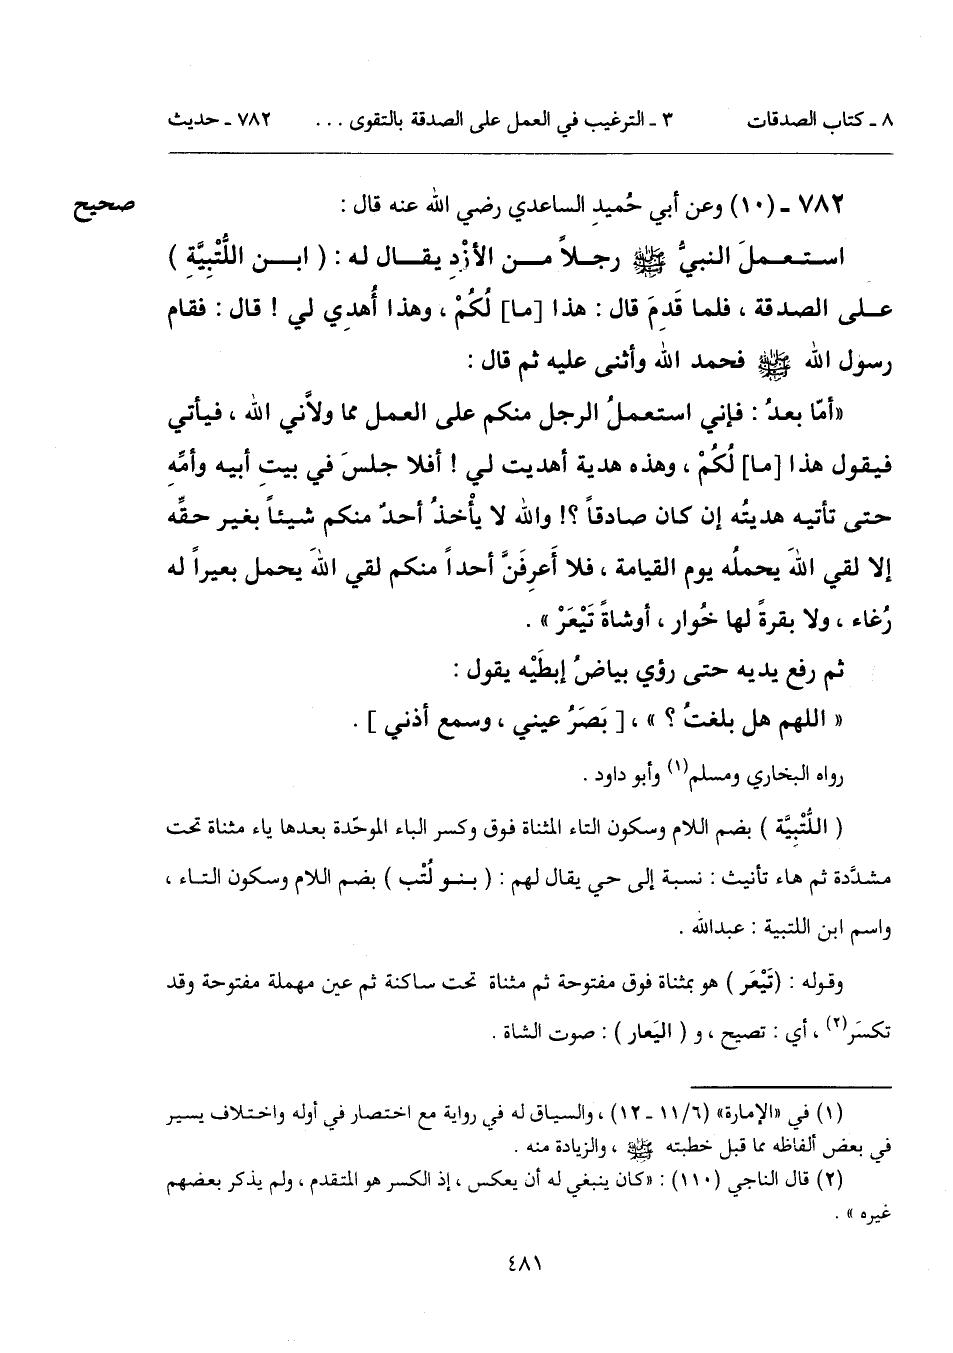 ٨ ـ كتاب الصدقات ٣ ـ الترغيب في العمل على الصدقة بالتقوى ... ٧٨٢ ـ حديث
٧٨٢ ـ (١٠) وعن أبي حُميدِ الساعدي رضي الله عنه قال : صحيح
استعملَ النبيُّ ﷺ رجلاً من الأزْدِ يقال له : ( ابن اللُّتْبِيَّةِ )
على الصدقة ، فلما قَدِمَ قال : هذا [ما] لَكُمْ ، وهذا أُهدِي لي ! قال : فقام
رسول الله ﷺ فحمد الله وأثنى عليه ثم قال :
«أمّا بعدُ : فإني استعملُ الرجل منكم على العمل مما ولاَّني الله ، فيأتي
فيقول هذا [ما] لَكُمْ ، وهذه هدية أهديت لي ! أفلا جلسَ في بيتِ أبيه وأمِّه
حتى تأتيه هديتُه إن كان صادقاً ؟! والله لا يأْخذُ أحدٌ منكم شيئاً بغير حقِّه
إلا لقي اللهَ يحملُه يوم القيامة ، فلا أَعرفَنَّ أحداً منكم لقي اللهَ يحمل بعيراً له
رُغاء ، ولا بقرةً لها خُوار ، أوشاةً تَيْعَرْ» .
ثم رفع يديه حتى رؤي بياضُ إبطَيْه يقول :
« اللهم هل بلغتُ ؟ » ، [ بَصَرُ عيني ، وسمع أذني ] .
رواه البخاري ومسلم(١) وأبو داود .
( اللُّتْبِيَّة ) بضم اللام وسكون التاء المثناة فوق وكسر الباء الموحّدة بعدها ياء مثناة تحت
مشدَّدة ثم هاء تأنيث : نسبة إلى حي يقال لهم : ( بنو لُتْب ) بضم اللام وسكون التاء ،
واسم ابن اللتبية : عبدالله .
وقوله : (تَيْعَر ) هو بمثناة فوق مفتوحة ثم مثناة تحت ساكنة ثم عين مهملة مفتوحة وقد
تكسَر(٢) ، أي : تصيح ، و ( اليَعار ) : صوت الشاة .
(١) في «الإمارة» (٦/ ١١ ـ ١٢) ، والسياق له في رواية مع اختصار في أوله واختلاف يسير
في بعض ألفاظه مما قبل خطبته ﷺ ، والزيادة منه .
(٢) قال الناجي (١١٠) : «كان ينبغي له أن يعكس ، إذ الكسر هو المتقدم ، ولم يذكر بعضهم
غيره » .
٤٨١